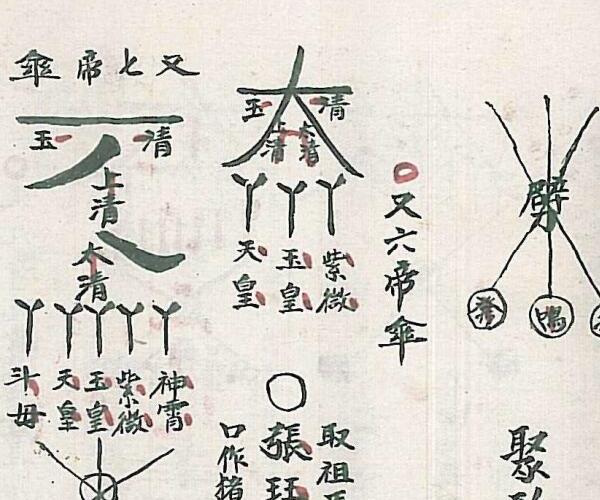 劈
聚
又六帝傘
清
玉
上清
太清
紫微
玉皇
天皇
取祖
張
口作
又七帝傘
清
玉
上清
太清
神霄
紫微
玉皇
天皇
斗母